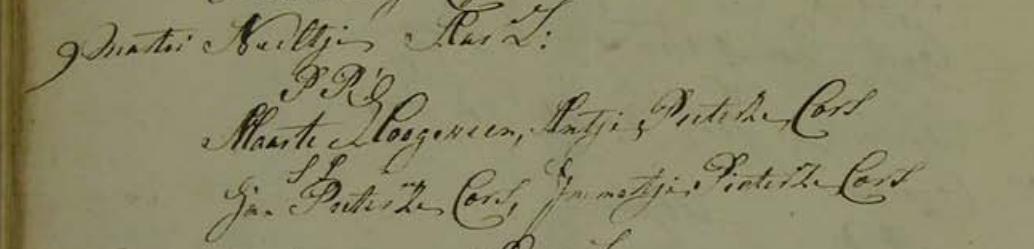 9 martii Neeltje
P P
Maarte Hoogerveen, Antje Pieterse Cors
S S
Jan Pieterse Cors, Immetje Pieterse Cors